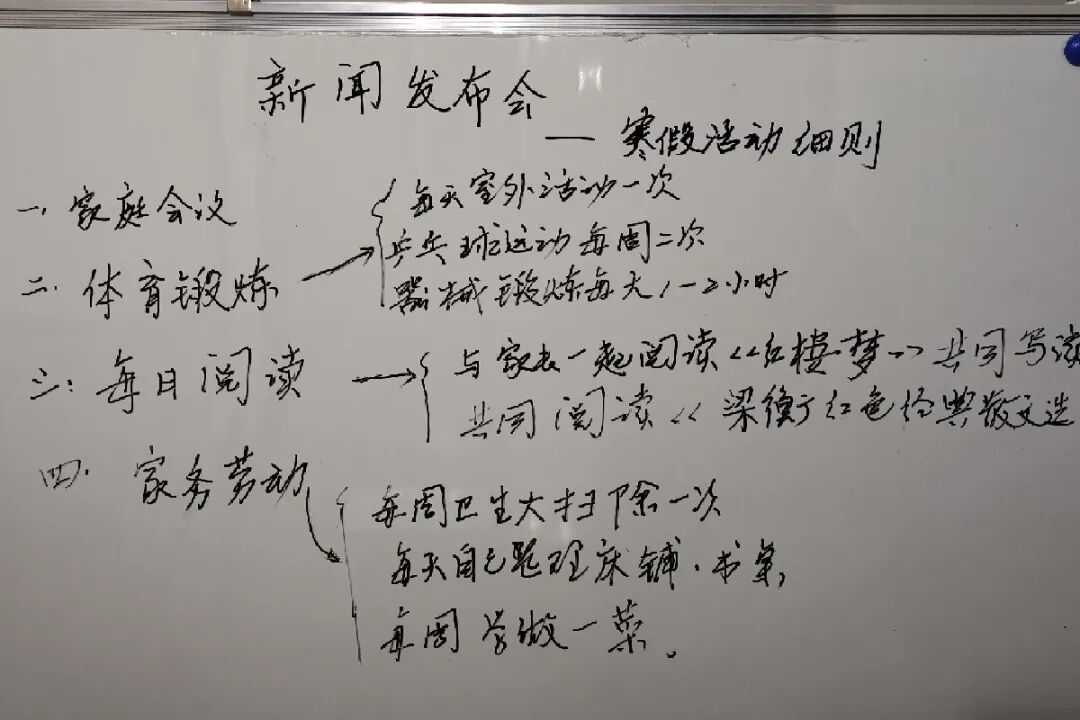 新闻发布会
—寒假活动细则
一、家庭会议
每天室外活动一次
二、体育锻炼
乒乓球运动每周二次
器械锻炼每天1-2小时
三:每日阅读
与家长一起阅读《红楼梦》共同写读
共同阅读《梁衡红色经典散文选
四、家务劳动
每周卫生大扫除一次
每天自己整理床铺、书桌,
每周学做一菜。